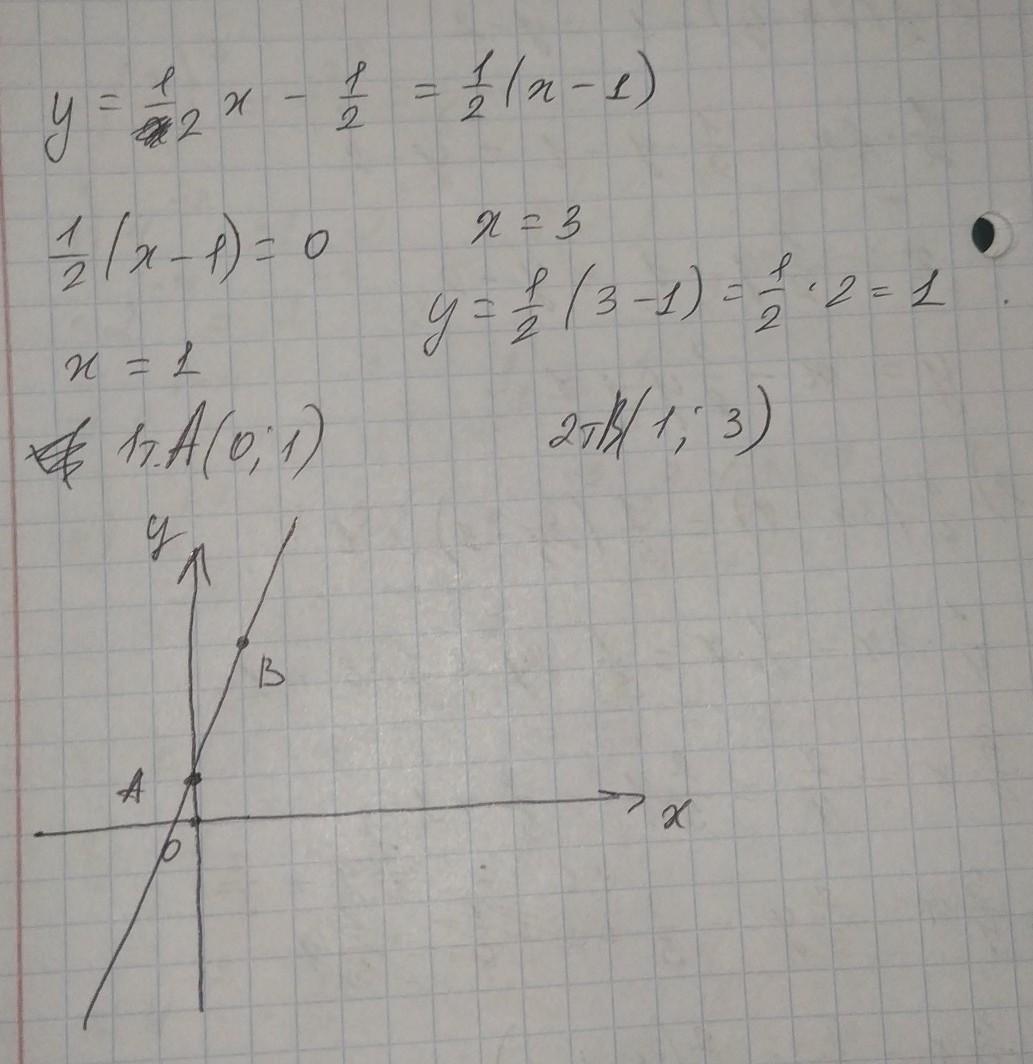 y = 1/2 x - 1/2 = 1/2 (x - 1)
1/2 (x - 1) = 0
x = 3
y = 1/2 (3 - 1) = 1/2 · 2 = 1
x = 1
1т. A(0; 1)
2т B(1; 3)
y
B
A
x
0